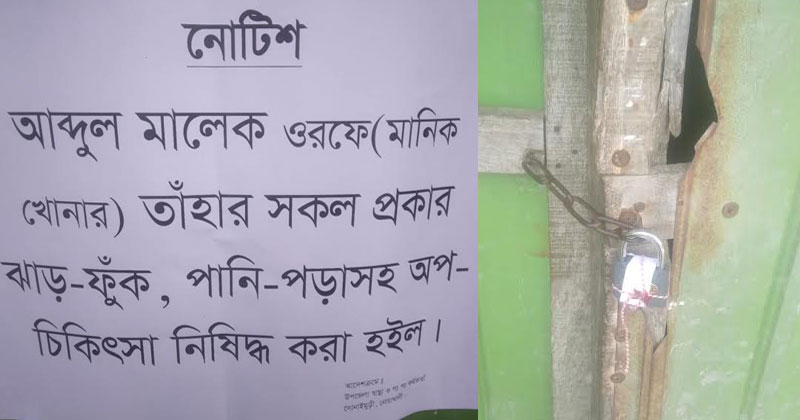 নোটিশ
আব্দুল মালেক ওরফে(মানিক
খোনার) তাঁহার সকল প্রকার
ঝাড়-ফুঁক, পানি-পড়াসহ অপ-
চিকিৎসা নিষিদ্ধ করা হইল।
আদেশক্রমে ঃ
উপজেলা স্বাস্থ্য ও প প কর্মকর্তা
সোনাইমুড়ী, নোয়াখালী